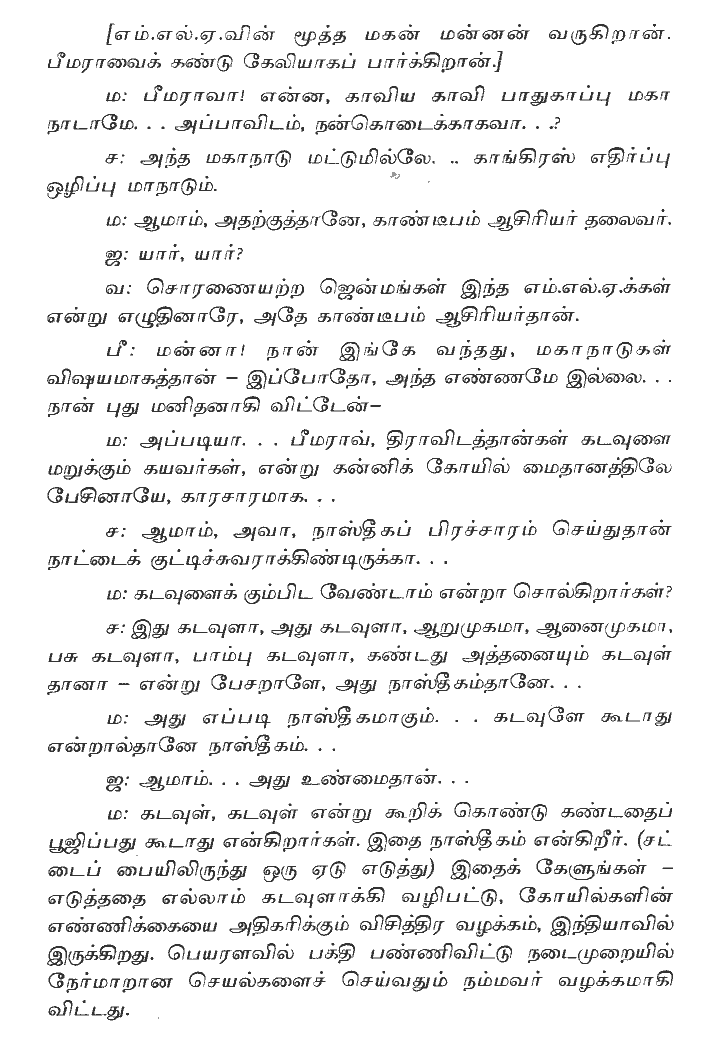 [எம்.எல்.ஏ.வின் மூத்த மகன் மன்னன் வருகிறான்.
பீமராவைக் கண்டு கேலியாகப் பார்க்கிறான்.]
ம: பீமராவா! என்ன, காவிய காவி பாதுகாப்பு மகா
நாடாமே. . . அப்பாவிடம், நன்கொடைக்காகவா. . .?
ச: அந்த மகாநாடு மட்டுமில்லே. .. காங்கிரஸ் எதிர்ப்பு
ஒழிப்பு மாநாடும்.
ம: ஆமாம், அதற்குத்தானே, காண்டீபம் ஆசிரியர் தலைவர்.
ஜ: யார், யார்?
வ: சொரணையற்ற ஜென்மங்கள் இந்த எம்.எல்.ஏ.க்கள்
என்று எழுதினாரே, அதே காண்டீபம் ஆசிரியர்தான்.
பீ: மன்னா! நான் இங்கே வந்தது, மகாநாடுகள்
விஷயமாகத்தான் – இப்போதோ, அந்த எண்ணமே இல்லை. . .
நான் புது மனிதனாகி விட்டேன்–
ம: அப்படியா. . . பீமராவ், திராவிடத்தான்கள் கடவுளை
மறுக்கும் கயவர்கள், என்று கன்னிக் கோயில் மைதானத்திலே
பேசினாயே, காரசாரமாக. . .
ச: ஆமாம், அவா, நாஸ்தீகப் பிரச்சாரம் செய்துதான்
நாட்டைக் குட்டிச்சுவராக்கிண்டிருக்கா. . .
ம: கடவுளைக் கும்பிட வேண்டாம் என்றா சொல்கிறார்கள்?
ச: இது கடவுளா, அது கடவுளா, ஆறுமுகமா, ஆனைமுகமா,
பசு கடவுளா, பாம்பு கடவுளா, கண்டது அத்தனையும் கடவுள்
தானா – என்று பேசறாளே, அது நாஸ்தீகம்தானே. . .
ம: அது எப்படி நாஸ்தீகமாகும். . . கடவுளே கூடாது
என்றால்தானே நாஸ்தீகம். . .
ஜ: ஆமாம். . . அது உண்மைதான். . .
ம: கடவுள், கடவுள் என்று கூறிக் கொண்டு கண்டதைப்
பூஜிப்பது கூடாது என்கிறார்கள். இதை நாஸ்தீகம் என்கிறீர். (சட்
டைப் பையிலிருந்து ஒரு ஏடு எடுத்து) இதைக் கேளுங்கள் –
எடுத்ததை எல்லாம் கடவுளாக்கி வழிபட்டு, கோயில்களின்
எண்ணிக்கையை அதிகரிக்கும் விசித்திர வழக்கம், இந்தியாவில்
இருக்கிறது. பெயரளவில் பக்தி பண்ணிவிட்டு நடைமுறையில்
நேர்மாறான செயல்களைச் செய்வதும் நம்மவர் வழக்கமாகி
விட்டது.